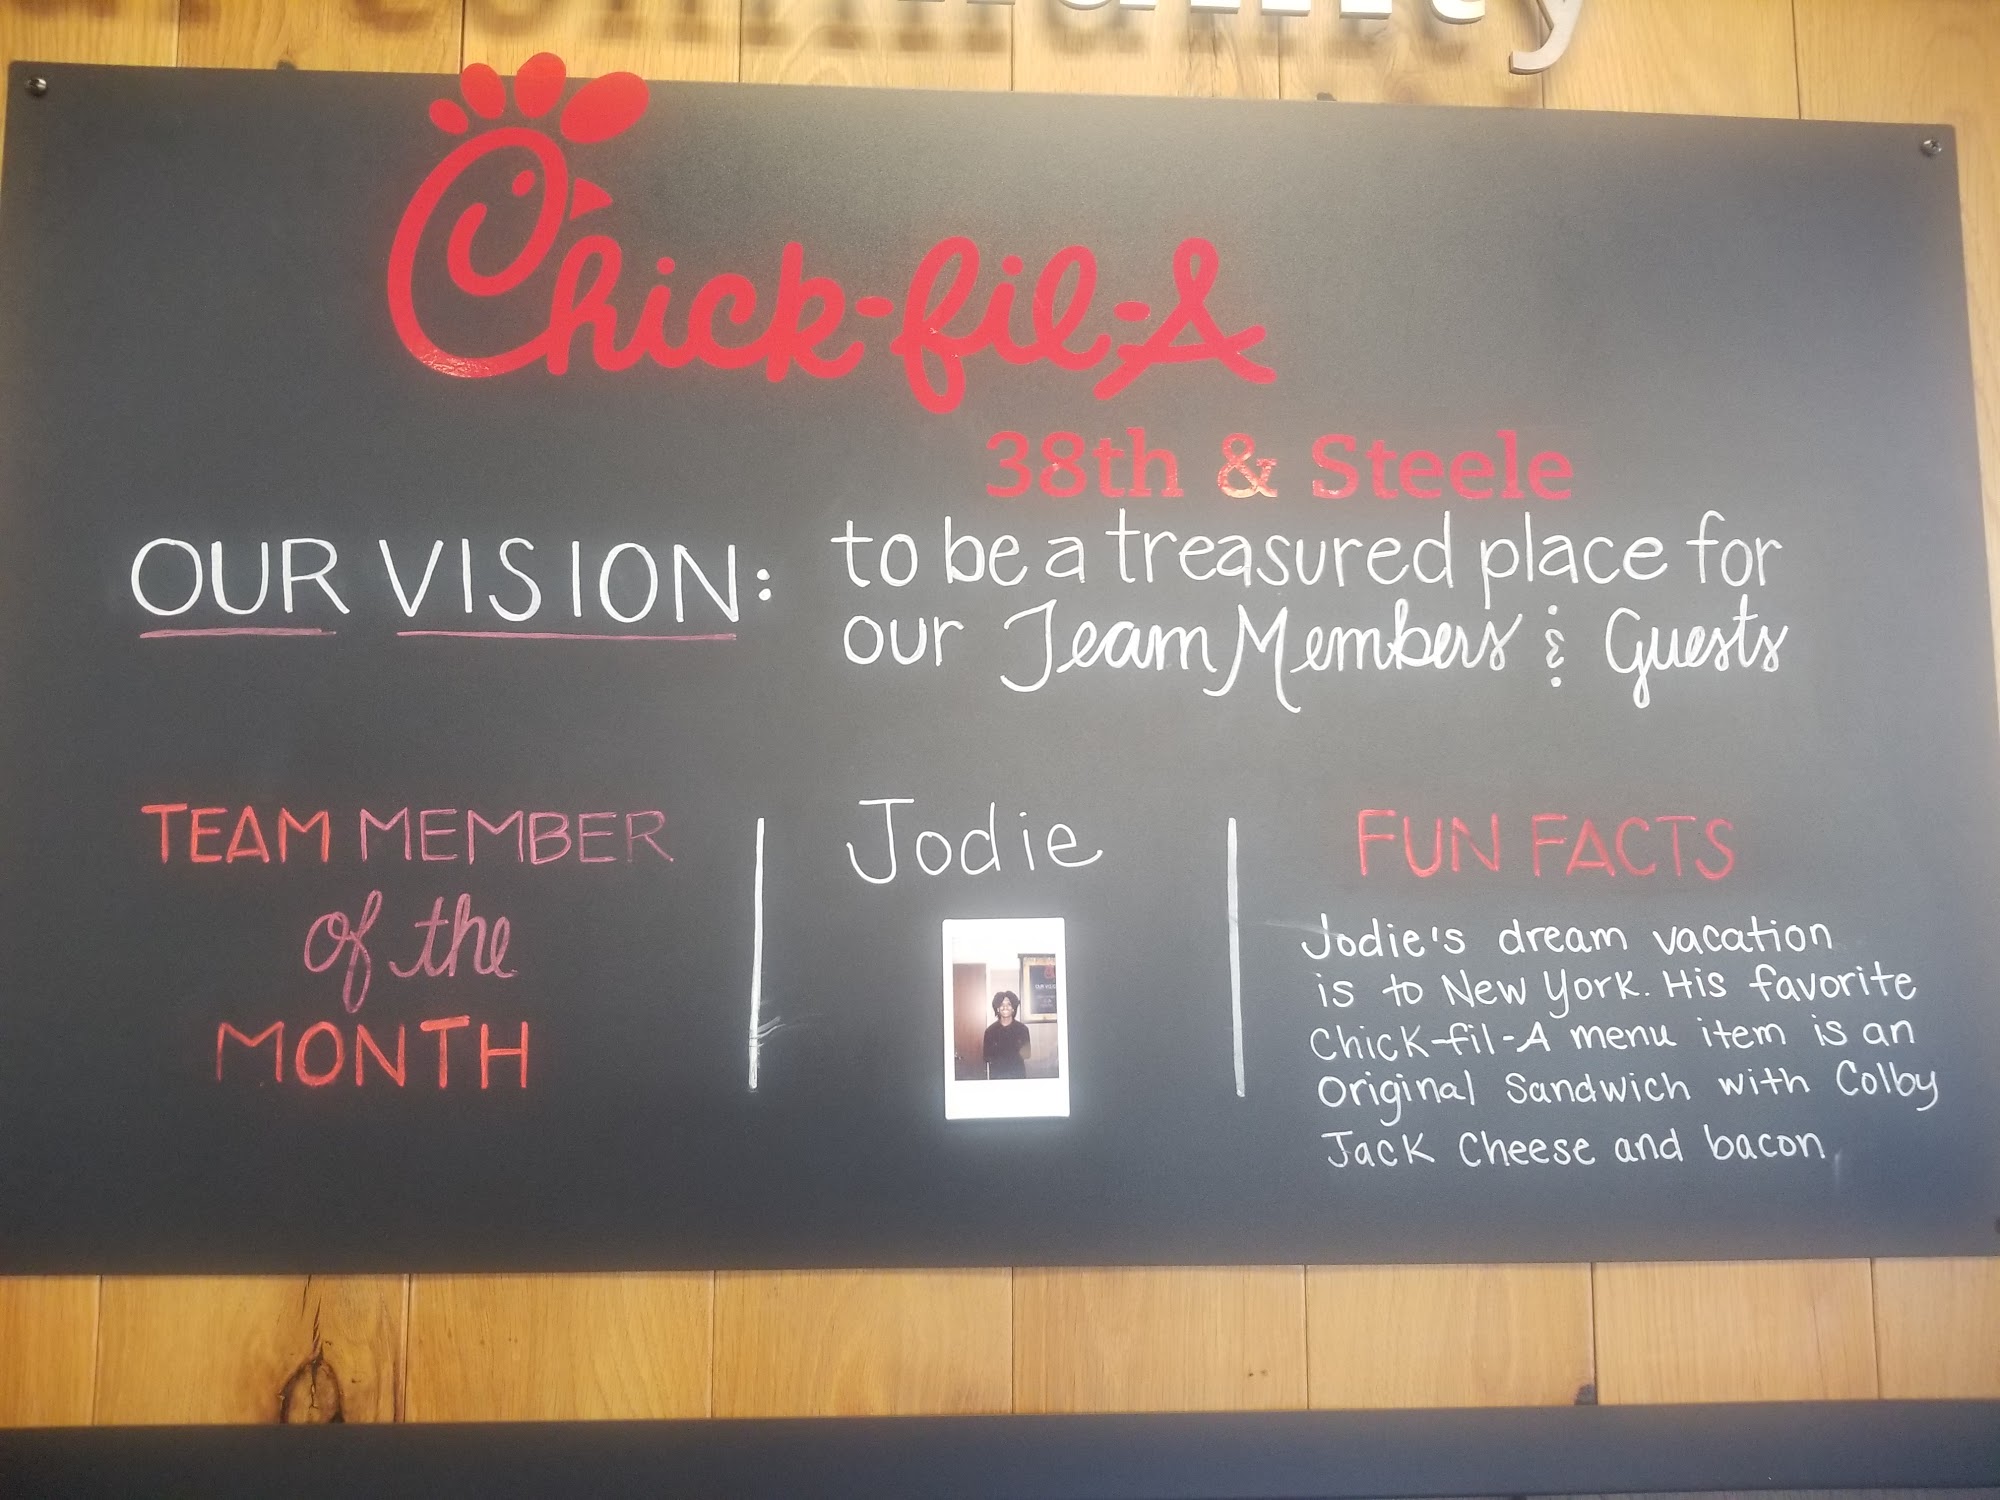 Chick-fil-A
38th & Steele
OUR VISION: to be a treasured place for
our Team Members & Guests
TEAM MEMBER
of the
MONTH
Jodie
FUN FACTS
Jodie's dream vacation
is to New York. His favorite
Chick-fil-A menu item is an
Original Sandwich with Colby
Jack Cheese and bacon